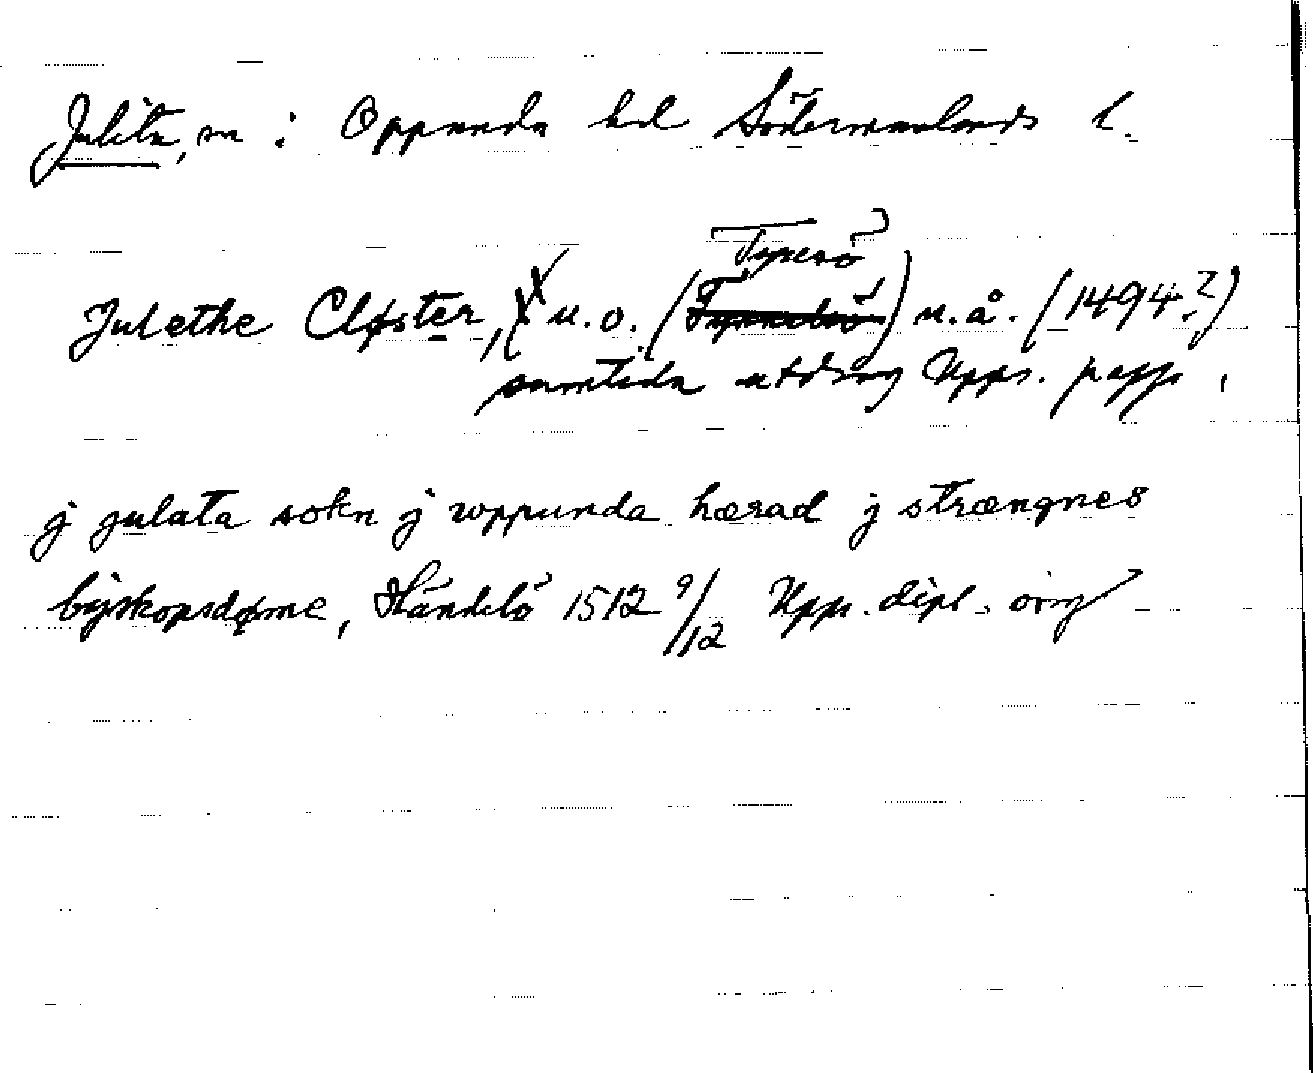 Julita, sn i Oppunda hd Södermanlands l.
Tyresö
Julethe Cløster, u.o. () u.å. (1494?)
samtida utdrag Upps. papp.
j julata sokn j woppunda hærad j strængnes
bijskopsdøme, Händelö 1512 9/12 Upps. dipl. orig